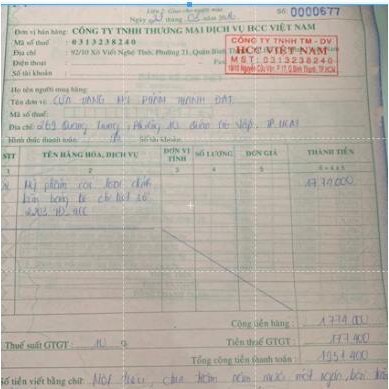 Liên 2: Giao cho người mua
Số: 0000677
Ngày tháng 03 năm
Đơn vị bán hàng: CÔNG TY TNHH THƯƠNG MẠI DỊCH VỤ HCC VIỆT NAM
Mã số thuế : 0313238240
Địa chỉ : 92/10 Xô Viết Nghệ Tĩnh, Phường 21, Quận Bình
Điện thoại : Fax
Số tài khoản :
CÔNG TY TNHH TM - DV
HCC VIỆT NAM
MST: 0313238240
Họ tên người mua hàng
Tên đơn vị: CỬA HÀNG MỸ PHẨM THÀNH ĐẠT
Mã số thuế:
Địa chỉ: Quang Trung, Phường 10, Quận Gò Vấp, TP.HCM
Hình thức thanh toán: Số tài khoản:
STT TÊN HÀNG HÓA, DỊCH VỤ ĐƠN VỊ TÍNH SỐ LƯỢNG ĐƠN GIÁ THÀNH TIỀN
1 2 3 4 5
Mỹ phẩm các loại đính 1.774.000
kèm bảng kê chi tiết số
HCC
Cộng tiền hàng : 1.774.000
Thuế suất GTGT : 10 % Tiền thuế GTGT : 177.400
Tổng cộng tiền thanh toán : 1.951.400
Số tiền viết bằng chữ: Một triệu chín trăm năm mươi mốt ngàn bốn